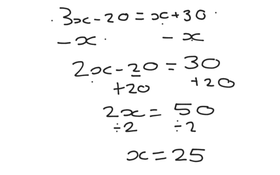 3x-20=x+30
-x -x
2x-20=30
+20 +20
2x=50
÷2 ÷2
x=25